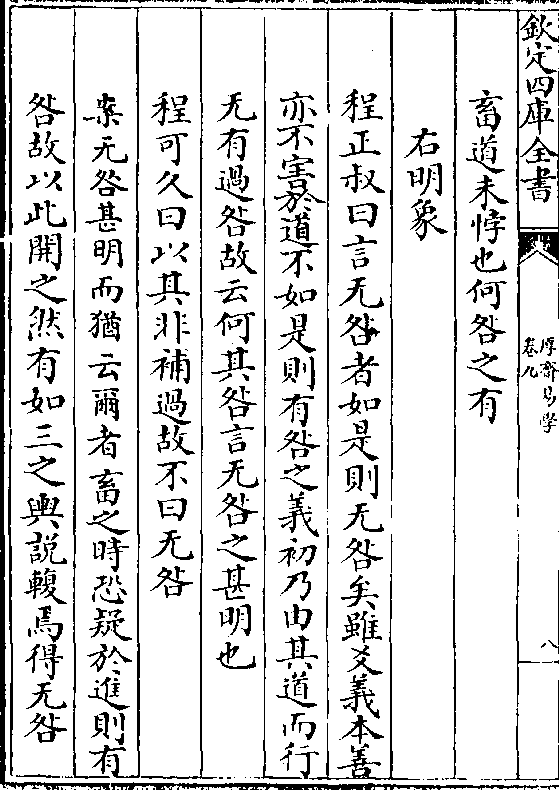 欽定四庫全書
厚齋易學
卷九
八
畜道未悖也何咎之有
右明象
程正叔曰言无咎者如是則无咎矣雖爻義本善
亦不害於道不如是則有咎之義初乃由其道而行
无有過咎故云何其咎言无咎之甚明也
程可久曰以其非補過故不曰无咎
案无咎甚明而猶云爾者畜之時恐疑於進則有
咎故以此開之然有如三之輿說輹焉得无咎